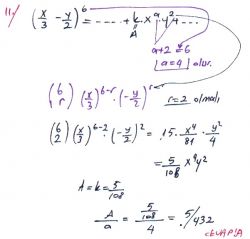 11-) (x/3 - y/2)^6 = ----- + k·x^a y^2 + ----
A
a+2=6
a=4 olur.
(6 r) (x/3)^(6-r) · (-y/2)^r r=2 olmalı
(6 2) (x/3)^(6-2) · (-y/2)^2 = 15 · x^4/81 · y^2/4
= 5/108 x^4 y^2
A=k=5/108
A/a = 5/108 / 4 = 5/432
CEVAPLA